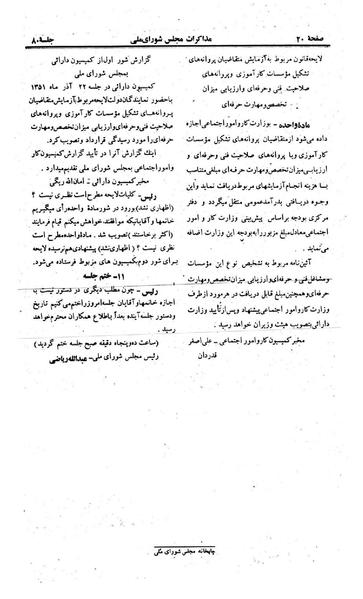 صفحهٔ ۲۰
مذاکرات مجلس شورای ملی
جلسهٔ ۸۰
لایحه قانون مربوط به آزمایش متقاضیان پروانه‌های
تشکیل مؤسسات کارآموزی و پروانه‌های
صلاحیت فنی و حرفه‌ای و ارزیابی میزان
تخصص و مهارت حرفه‌ای
ماده واحده - وزارت کار و امور اجتماعی اجازه
داده می‌شود از متقاضیان پروانه‌های تشکیل مؤسسات
کارآموزی و یا پروانه‌های صلاحیت فنی و حرفه‌ای و
ارزیابی میزان تخصص و مهارت حرفه‌ای مبلغی متناسب
با هزینه انجام آزمایشهای مربوط دریافت نماید و این
وجوه دریافتی به درآمد عمومی منتقل میگردد و دفتر
مرکزی بودجه بر اساس پیش‌بینی وزارت کار و امور
اجتماعی معادل مبلغ مزبور را به بودجه این وزارت اضافه
می‌نماید .
آئین‌نامه مربوط به تشخیص نوع این مؤسسات
و مشاغل فنی و حرفه‌ای و ارزیابی میزان تخصص و مهارت
حرفه‌ای و همچنین مبلغ قابل دریافت در هر مورد از طرف
وزارت کار و امور اجتماعی پیشنهاد و پس از تأیید وزارت
دارائی بتصویب هیئت وزیران خواهد رسید .
مخبر کمیسیون کار و امور اجتماعی - علی اصغر
قدردان
گزارش شور اول از کمیسیون دارائی
به مجلس شورای ملی
کمیسیون دارائی در جلسه ۲۲ آذر ماه ۱۳۵۱
با حضور نمایندگان دولت لایحه مربوط به آزمایش متقاضیان
پروانه‌های تشکیل مؤسسات کارآموزی و پروانه‌های
صلاحیت فنی و حرفه‌ای و ارزیابی میزان تخصص و مهارت
حرفه‌ای را مورد رسیدگی قرار داد و تصویب کرد.
اینک گزارش آنرا در تأیید گزارش کمیسیون کار
و امور اجتماعی به مجلس شورای ملی تقدیم میدارد .
مخبر کمیسیون دارائی - امان‌الله ریگی
رئیس - کلیات لایحه مطرح است نظری نیست ؟
(اظهاری نشد) بورود در شور مادهٔ واحده رأی میگیریم
خانمها و آقایانیکه موافقند، خواهش میکنم قیام فرمایند
(اکثر برخاستند) تصویب شد . مادهٔ واحده مطرح است
نظری نیست ؟ (اظهاری نشد) پیشنهادی هم نرسیده لایحه
برای شور دوم بکمیسیون های مربوط فرستاده می‌شود.
۱۱- ختم جلسه
رئیس - چون مطلب دیگری در دستور نیست با
اجازه خانمها و آقایان جلسه امروز را ختم می‌کنیم تاریخ
و دستور جلسه آینده بعداً باطلاع همکاران محترم خواهد
رسید .
(ساعت ده و پنجاه دقیقه صبح جلسه ختم گردید)
رئیس مجلس شورای ملی - عبدالله ریاضی
چاپخانه مجلس شورای ملی